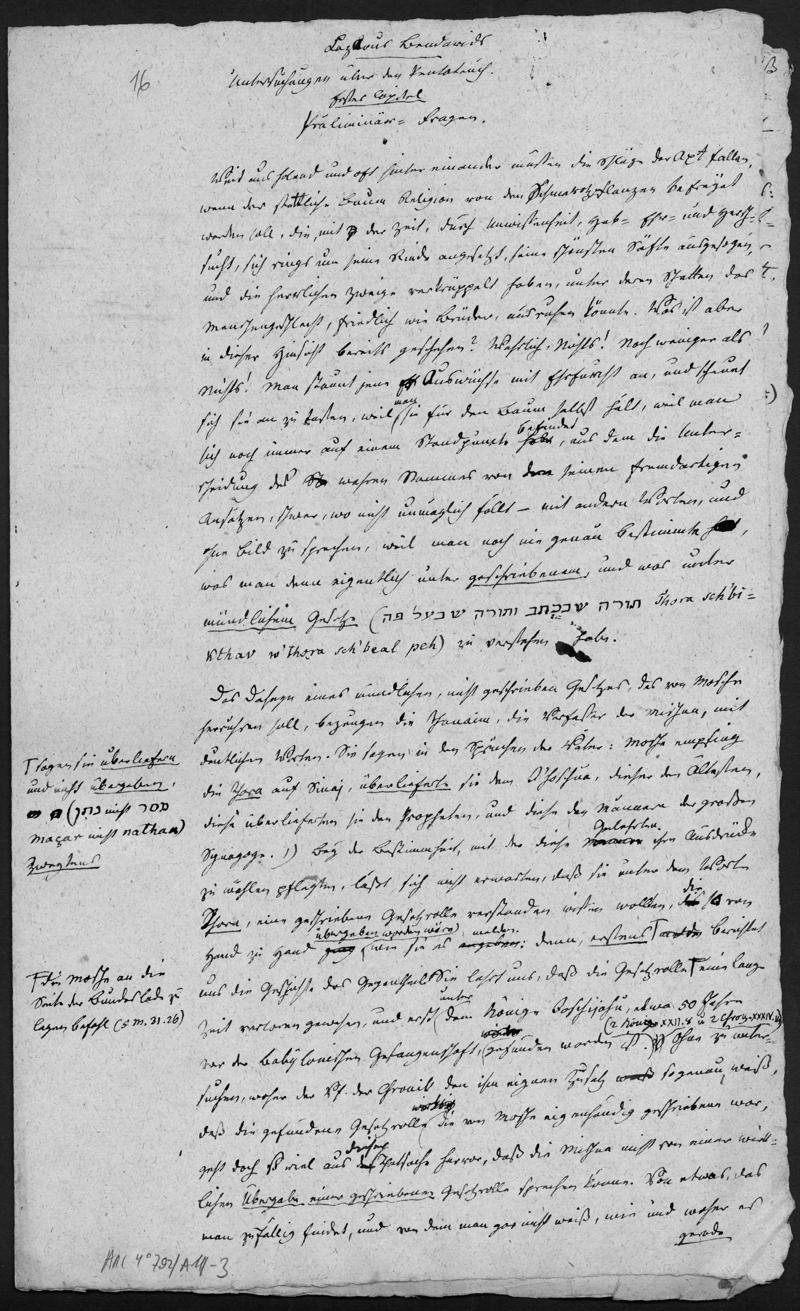 16
Lazarus Bendavids
Untersuchungen über den Pentateuch.
Erstes Capitel
Präliminär-Fragen.
Wird uns und oft hinter einander müssen die Schläge der Axt fallen,
wenn der stattliche Baum Religion von den Schmarotzpflanzen befreyet
werden soll, die, mit der Zeit, durch Unwissenheit, Hab- Ehr- und Herrsch-
sucht, sich rings um seine Rinde angesetzt, seine schönsten Säfte ausgesogen,
und die herrlichen Zweige verkrüppelt haben, unter deren Schatten das
Menschengeschlecht, friedlich wie Brüder, ausruhen könnte. Was ist aber
in dieser Hinsicht bereits geschehen? Wahrlich, Nichts! Noch weniger als
Nichts! Man staunt jene Auswüchse mit Ehrfurcht an, und scheuet
sich sie an zu tasten, weil man sie für den Baum selbst hält, weil man
sich noch immer auf einem Standpunkte befindet, aus dem die Unter-
scheidung des wahren Stammes von seinen fremdartigen
Ansätzen, schwer, wo nicht unmöglich fällt – mit andern Worten, und
ohne Bild zu sprechen, weil man noch nie genau bestimmte,
was man denn eigentlich unter geschriebenem, und was unter
mündlichem Gesetze (תורה שבכתב ותורה שבעל פה Thora sch'bi-
kthav w'Thora sch'beal peh) zu verstehen habe.
Das Daseyn eines mündlichen, nicht geschrieben Gesetzes, das von Mosche
herrühren soll, bezeugen die Thanaim, die Verfasser der Mishna, mit
deutlichen Worten. Sie sagen in den Sprüchen der Väter: Mosche empfing
die Tora auf Sinaj, überlieferte sie dem Jhoschua, dieser den Ältesten,
diese überlieferten sie den Propheten, und diese den Männern der großen
Synagoge. 1) Bey der Bestimmtheit, mit der diese Gelehrten ihre Ausdrücke
zu wählen pflegten, lässt sich nicht erwarten, daß sie unter dem Worte
Thora, eine geschriebene Gesetzrolle verstanden wissen wollten, die so von
Hand zu Hand übergeben worden wäre, wie sie es melden: denn, erstens berichtet
sagen sie überliefern
und nicht übergeben,
(מסר nicht נתן
maçar nicht nathan)
Zweytens
uns die Geschichte das Gegentheil. Sie lehrt uns, daß die Gesetzrolle eine lange
die Mosche an die
Seite der Bundeslade zu
legen befahl (5 M. 31. 26)
Zeit verloren gewesen, und erst unter dem Könige Joschijahu, etwa 50 Jahre
vor der Babylonischen Gefangenschaft, gefunden worden ist. (2 König XXII. 8 u 2 Chron. XXXIV.) Ohne zu unter-
suchen, woher der Vf. der Chronik den ihm eignen Zusatz so genau weiß,
daß die gefundene Gesetzrolle die von Mosche eigenhändig geschriebene war,
geht doch so viel aus dieser Thatsache hervor, daß die Mishna nicht von einer wirk-
lichen Übergabe einer geschriebenen Gesetzrolle sprechen könne. Von etwas, das
man zufällig findet, und von dem man gar nicht weiß, wie und woher es
gerade
ARC 4° 792/A11-3